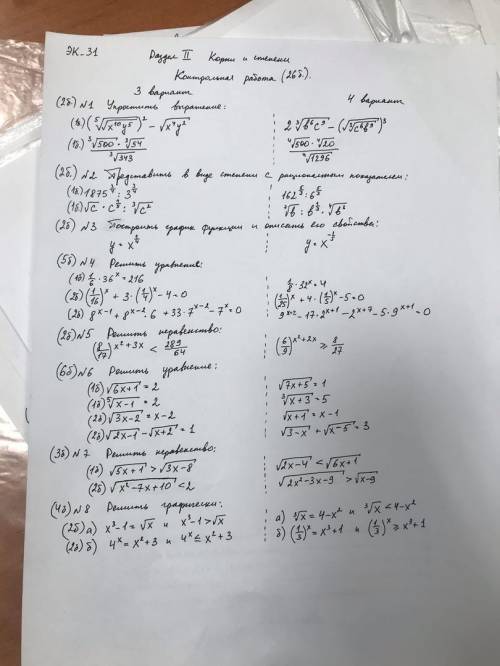 ЭК-31 Раздел II Корни и степени
Контрольная работа (26б.).
3 вариант 4 вариант
(2б) №1 Упростить выражение:
(1б) (⁵√(√(x¹⁰y⁵)))² − √(x⁴y²) 2 ³√(b⁶c⁹) − (√(³√(c⁶b⁹)))³
(1б) (³√500 · ³√54)/³√343 (⁴√500 · ⁴√20)/⁴√1296
(2б.) №2 Представить в виде степени с рациональным показателем:
(1б) 1875^(1/4) : 3^(1/4) 162^(2/3) : 6^(2/3)
(1б) √c · c^(1/3) : ³√c² ³√b : b^(1/3) · ⁴√b²
(2б) №3 Построить график функции и описать его свойства:
y = x^(1/4) y = x^(-1/3)
(5б) №4 Решить уравнение:
(1б) 1/6 · 36ˣ = 216 1/8 · 32ˣ = 4
(2б) (1/16)ˣ + 3 · (1/4)ˣ − 4 = 0 (1/25)ˣ + 4 · (1/5)ˣ − 5 = 0
(2б) 8ˣ⁻¹ + 8ˣ⁻² · 6 + 33 · 7ˣ⁻² − 7ˣ = 0 9ˣ⁺² − 17 · 2ˣ⁺¹ − 2ˣ⁺⁷ − 5 · 9ˣ⁺¹ = 0
(2б) №5 Решить неравенство:
(8/17)^(x²+3x) < 289/64 (6/9)^(x²+2x) ⩾ 8/27
(6б) №6 Решить уравнение:
(1б) √(6x+1) = 2 √(7x+5) = 1
(1б) ⁵√(x−1) = 2 ³√(x+3) = 5
(2б) √(3x−2) = x−2 √(x+1) = x−1
(2б) √(2x−1) − √(x+2) = 1 √(3−x) + √(x−5) = 3
(3б) №7 Решить неравенство:
(1б) √(5x+1) > √(3x−8) √(2x−4) < √(6x+1)
(2б) √(x²−7x+10) < 2 √(2x²−3x−9) > √(x−9)
(4б) №8 Решить графически:
(2б) а) x³−1 = √x и x³−1 > √x а) ³√x = 4−x² и ³√x < 4−x²
(2б) б) 4ˣ = x²+3 и 4ˣ ≤ x²+3 б) (1/3)ˣ = x³+1 и (1/3)ˣ ⩾ x³+1